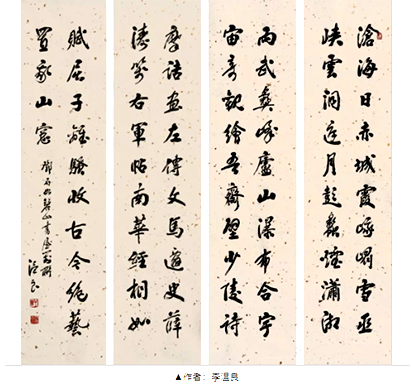 滄海日赤城霞峨嵋雪巫
峽雲洞庭月彭蠡煙瀟湘
雨武彝峰廬山瀑布合宇
宙奇觀繪吾齋壁少陵詩
摩詰畫左傳文馬遷史薛
濤箋右軍帖南華經相如
賦屈子離騷收古今絕藝
置我山窗
鄧石如碧山書屋聯
▲作者：李温良